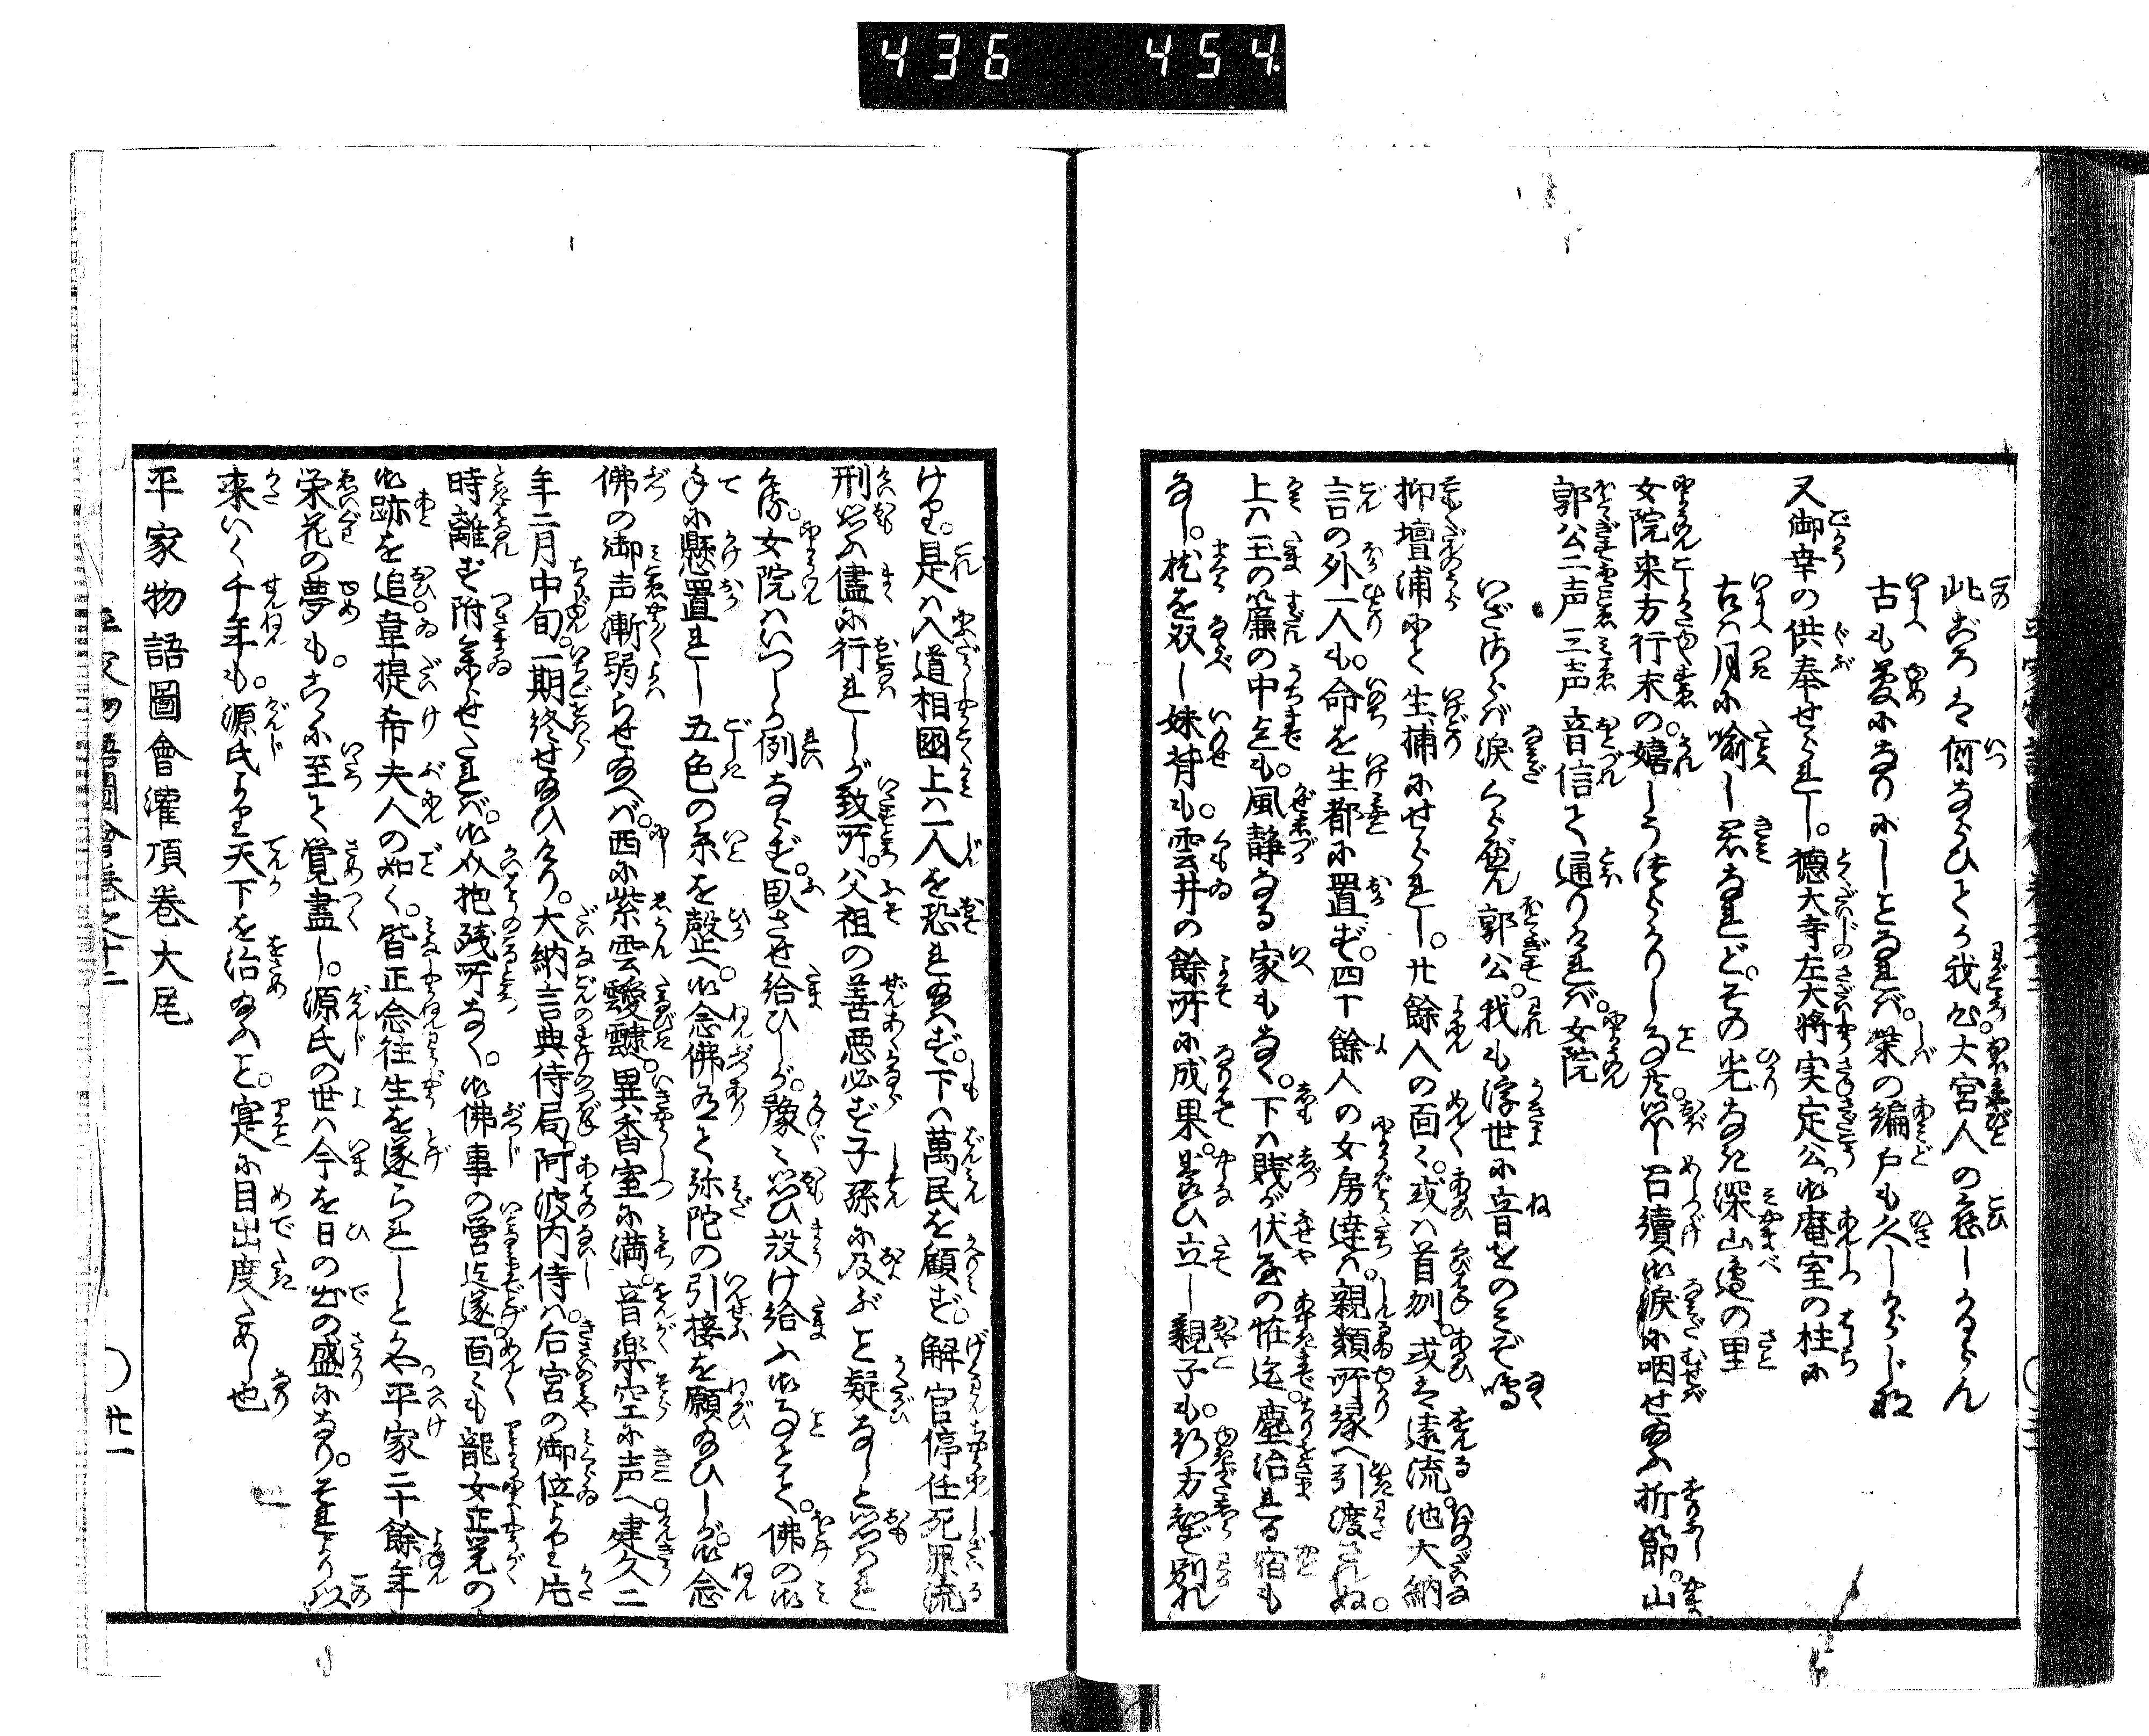 436 454
此ごろは何ならひてか我心大宮人の恋しかるらん
古も夢になりにしことなれば。柴の編戸も久しからじな
又御幸の供奉せられし。徳大寺左大将実定公。御庵室の柱に
古は月に喩し君なれど。その光なき深山辺の里
女院来方行末の。嬉しうつらかりし事共。思し召續。御涙に咽せ給ふ折節。山
郭公二声三声音信て通りければ。女院
いざさらば涙くらべん郭公。我も浮世に音をのみぞ鳴
抑壇浦にて生捕にせられし。廿餘人の面々。或は首刎。或は遠流。池大納
言の外一人も。命を生都に置ず。四十餘人の女房達は。親類所縁へ引渡されぬ。
上は玉の簾の中迄も。風静なる家もなく。下は賎が伏屋の怪迄。塵治れる宿も
なし。枕を双し妹背も。雲井の餘所に成果。養ひ立し親子も。行方知ず別れ
けり。是は入道相國上は一人を恐れ給はず。下は萬民を顧ず。解官停任死罪流
刑思ふ儘に行れしが致所。父祖の善悪必ず子孫に及ぶと疑なしと思はれ
ける。女院はいつしか例ならず。臥させ給ひしが。豫て思ひ設け給ふ御事とて。佛の御
手に懸置れし五色の糸を整へ。御念佛有て弥陀の引接を願給ひしが。御念
佛の御声漸弱らせ給へば。西に紫雲靉靆。異香室に満。音楽空に声へ。建久二
年二月中旬。一期終せ給ひけり。大納言典侍局。阿波内侍は。后宮の御位より片
時離ず附参らせたれば。御介抱残所なく。御佛事の営迄遂。面々も龍女正覚の
御跡を追。韋提希夫人の如く。皆正念往生を遂られしとかや。平家二十餘年
栄花の夢も。こゝに至て覚盡し。源氏の世は今を日の出の盛になり。それより以
来いく千年も。源氏より天下を治給ふこと。寔に目出度ためし也
平家物語圖會灌頂巻大尾
平家物語圖會巻之十二
廿一